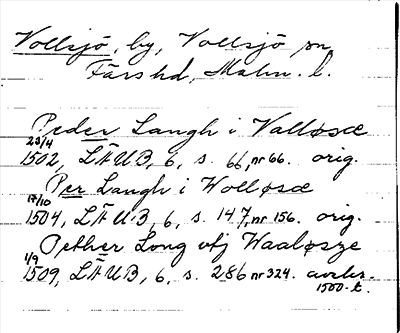 Vollsjö, by, Vollsjö sn,
Färs hd, Malm. l.
Peder Langh i Valløsæ
23/4
1502, LÄUB, 6, s. 66, nr 66. orig.
Per Langh i Wolløsæ
17/10
1504, LÄUB, 6, s. 147, nr 156. orig.
Pether Long vtj Waaløsze
1/9
1509, LÄUB, 6, s. 286 nr 324. avskr.
1500-t.